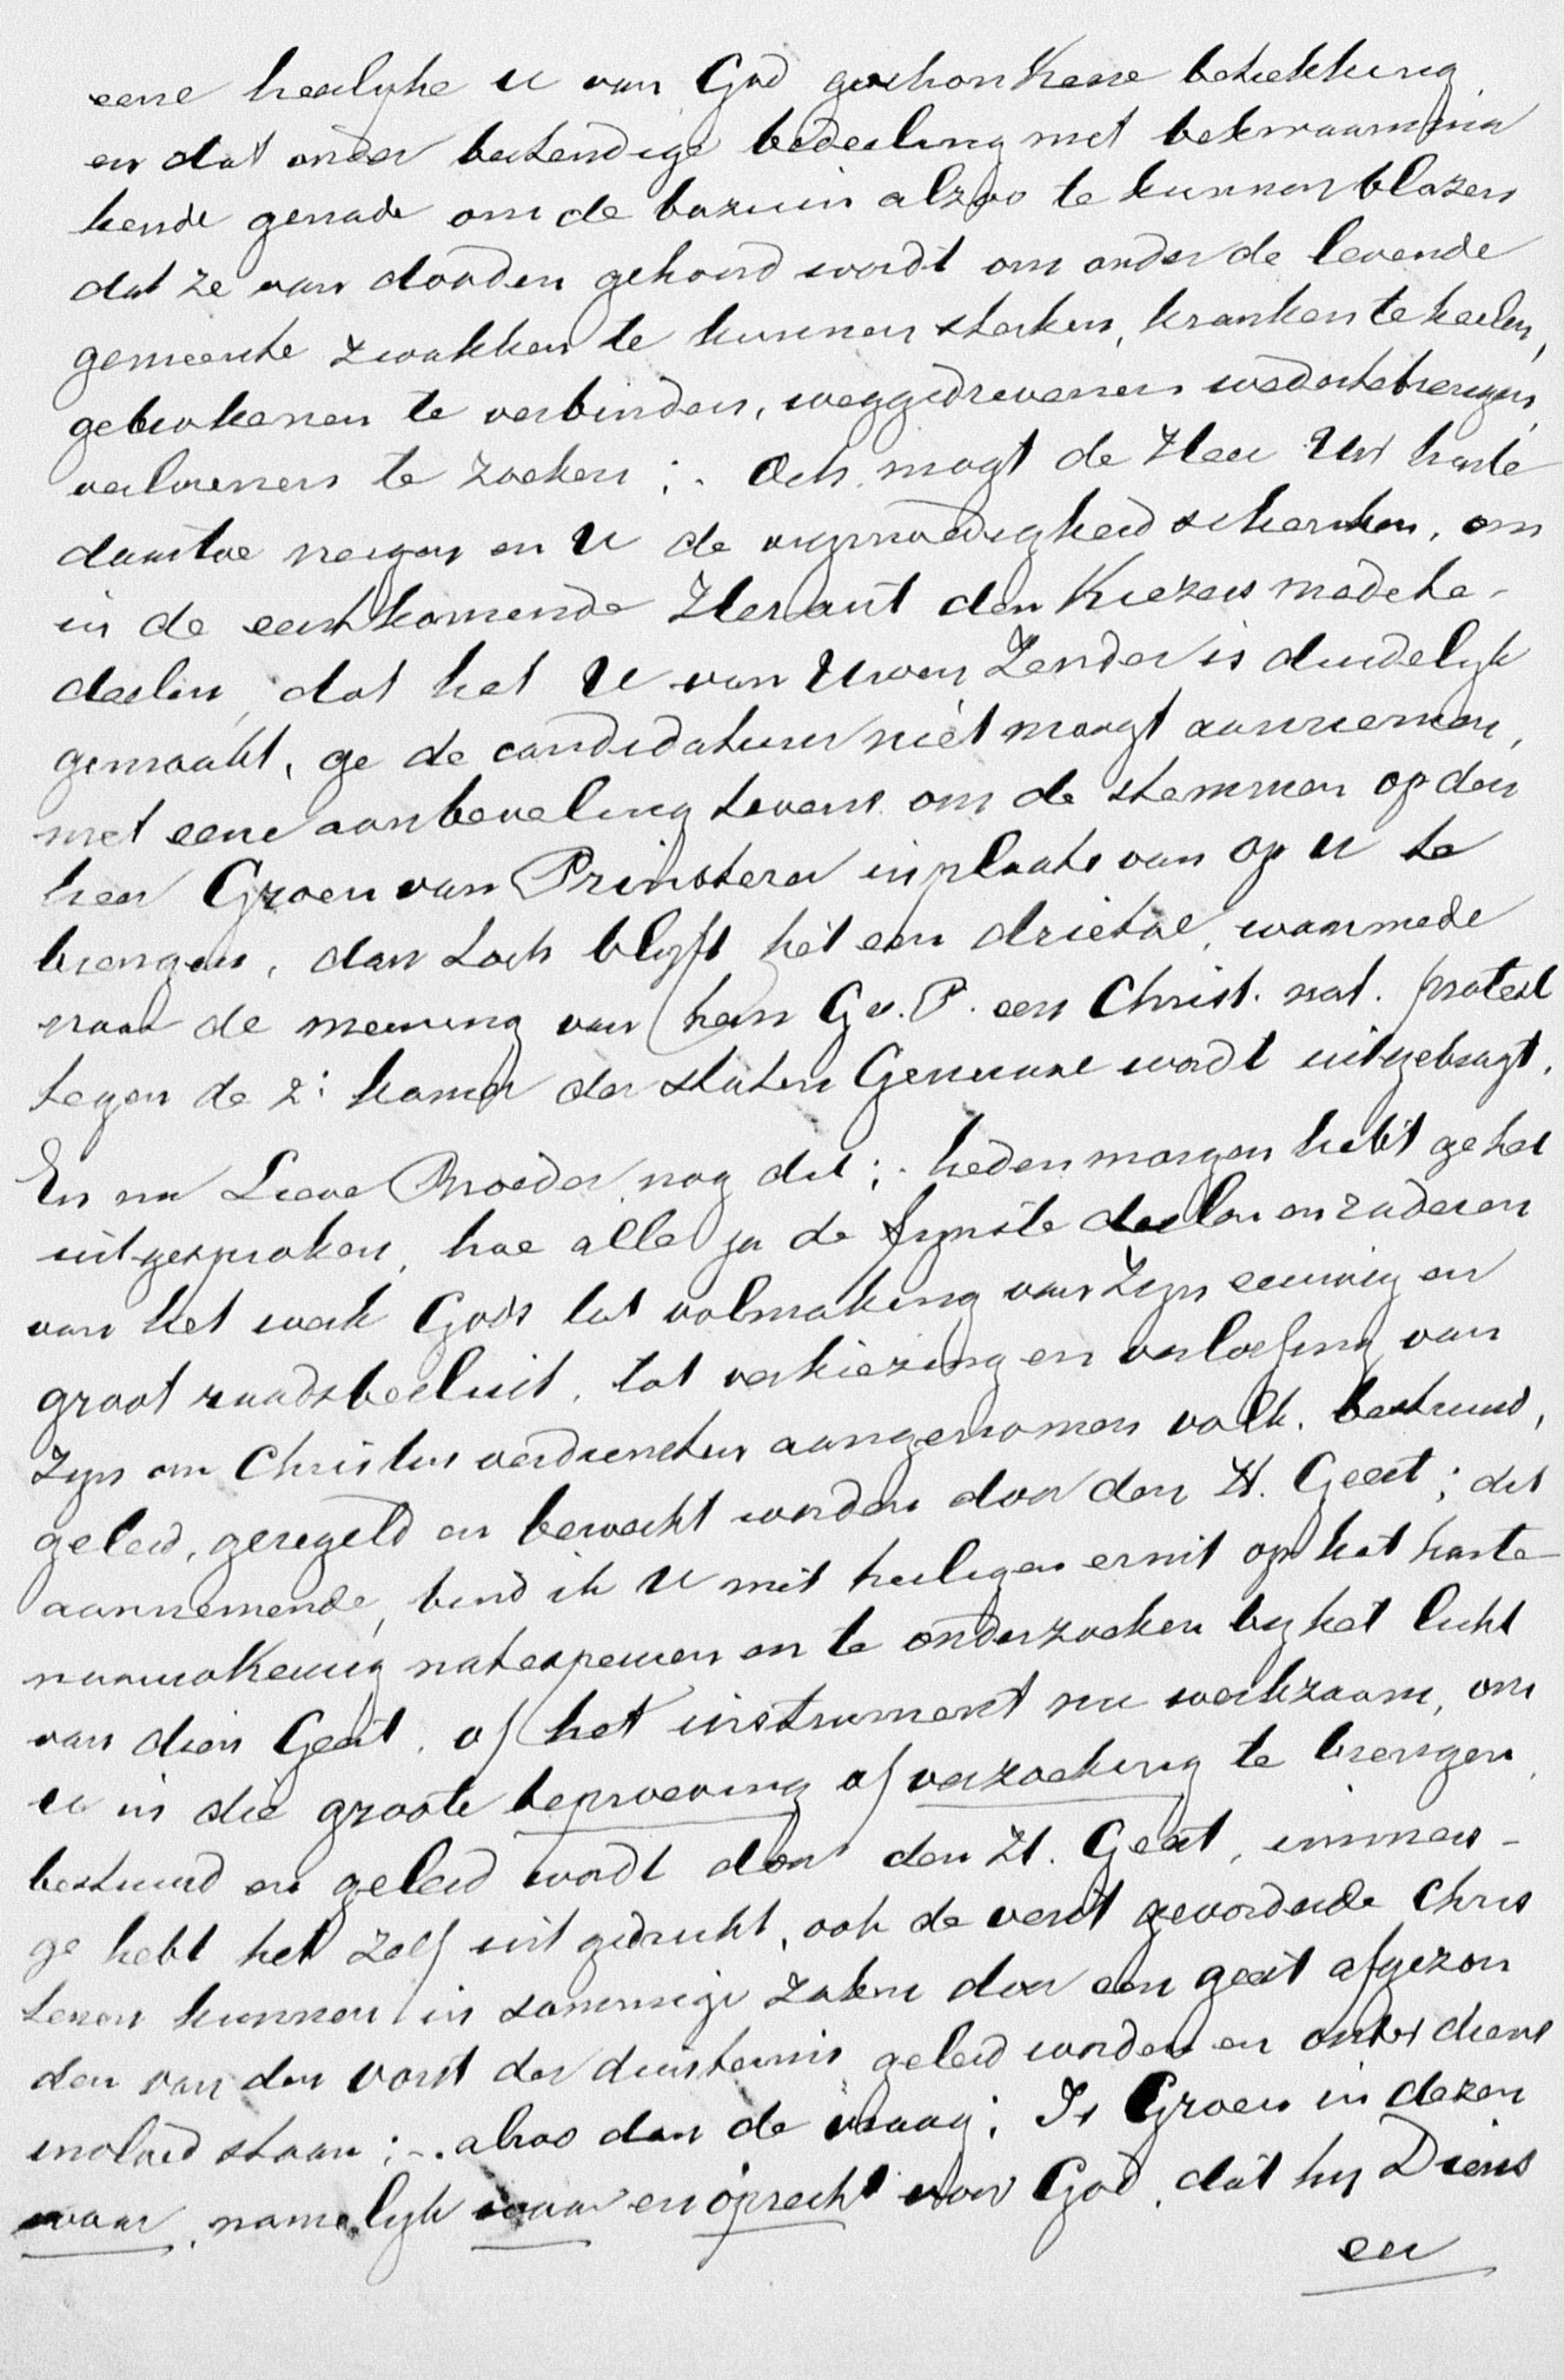 eene heerlyke u van God geschonkene betrekking
en dat onder bestendige bedeeling met bekwaamma
kende genade om de bazuin alzoo te kunnen blazen
dat ze van dooden gehoord wordt om onder de levende
gemeente zwakken te kunnen sterken, kranken te heelen,
gebrokenen te verbinden, weggedrevenen wederte brengen,
verlorenen te zoeken ;. Och mogt de Heer Uw harte
daartoe neigen en U de vrymoedigheid schenken, om
in de eerstkomende Heraut den Kiezers medete-
deelen, dat het U van Uwen Zender is duidelyk
gemaakt, ge de candidatuur niet moogt aannemen,
met eene aanbeveling tevens om de stemmen op den
heer Groen van Prinsterer in plaats van op u te
brengen, dan toch blyft het een drietal, waarmede
naar de meening van hem G v. P. een Christ. nat. protest
tegen de 2: kamer der staten Generaal wordt uitgebragt.
En nu Lieve Broeder nog dit ;. heden morgen hebt ge het
uitgesproken, hoe alle ja de fynste deelen en raderen
van het werk Gods tot volmaking van Zyn eeuwig en
groot raadsbesluit, tot verkiezing en verlossing van
Zyn om Christus verdiensten aangenomen volk. bestuurd,
geleid, geregeld en bewerkt worden door den H. Geest ; dit
aannemende, bind ik U met heiligen ernst op het harte
naauwkeurig natespeuren en te onderzoeken by het licht
van dien Geest, of het instrument nu werkzaam, om
u in die groote beproeving of verzoeking te brengen,
bestuurd en geleid wordt door den H. Geest, immers -
ge hebt het zelf uitgedrukt, ook de verst gevorderde Chris
tenen kunnen in sommige zaken door een geest afgezon
den van den vorst der duisternis geleid worden en onder diens
invloed staan ;-. alzoo dan de vraag ; Is Groen in dezen
waar, namelyk waar en oprecht voor God, dat hy Diens
eer